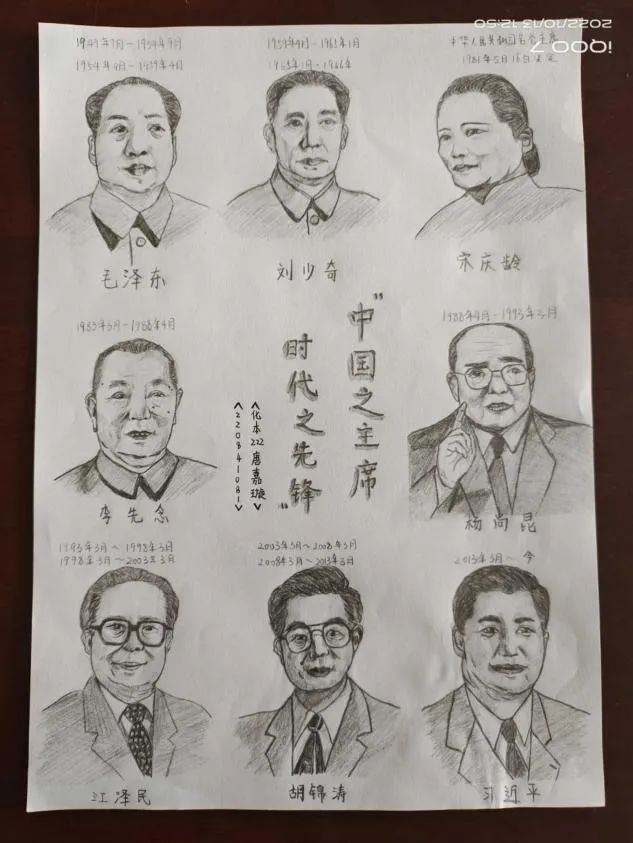 2022/10/13 12:50
iQOO 7
1949年9月－1954年9月
1954年9月－1959年4月
毛泽东
1959年4月－1965年1月
刘少奇
1981年5月16日
宋庆龄
1983年6月－1988年4月
李先念
"中国之主席
时代之先锋"
<化本222 唐嘉璇
<2208441081>
1988年4月－1993年3月
杨尚昆
1993年3月～1998年3月
1998年3月～2003年3月
江泽民
2003年3月～2008年3月
2008年3月～2013年3月
胡锦涛
2013年3月～今
习近平